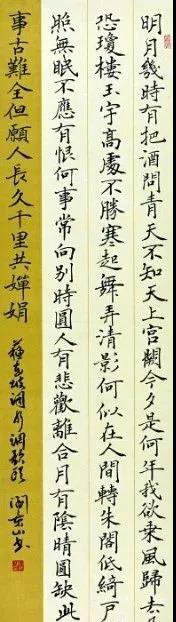 明月幾時有把酒問青天不知天上宮闕今夕是何年我欲乘風歸去又
恐瓊樓玉宇高處不勝寒起舞弄清影何似在人間轉朱閣低綺戶
照無眠不應有恨何事常向別時圓人有悲歡離合月有陰晴圓缺此
事古難全但願人長久千里共嬋娟
蘇東坡詞水調歌頭